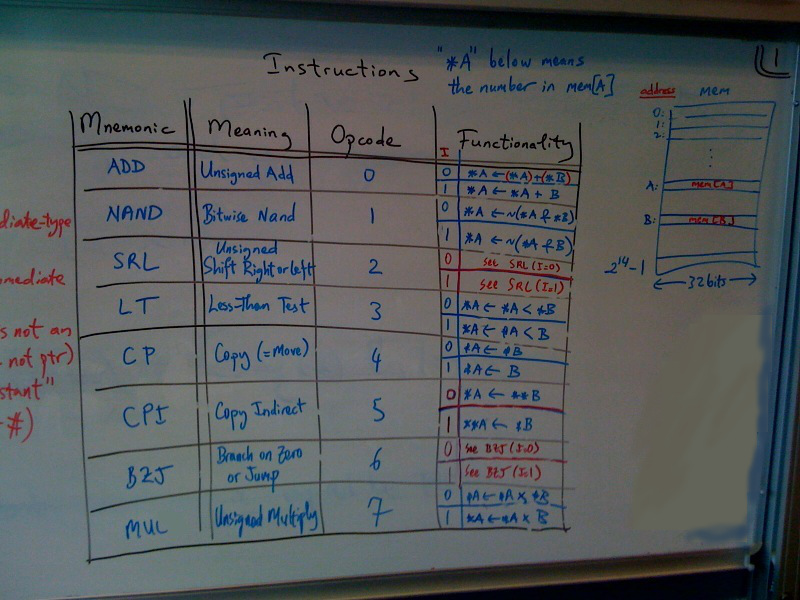 Instructions
"*A" below means
the number in mem[A]
1
address mem
0:
1:
2:
A: mem[A]
B: mem[B]
2^14-1
32 bits
Mnemonic Meaning Opcode I Functionality
ADD Unsigned Add 0 0 *A ← (*A)+(*B)
1 *A ← *A + B
NAND Bitwise Nand 1 0 *A ← ~(*A & *B)
1 *A ← ~(*A & B)
SRL Unsigned Shift Right or left 2 0 see SRL (I=0)
1 see SRL (I=1)
LT Less-Than Test 3 0 *A ← *A < *B
1 *A ← *A < B
CP Copy (=Move) 4 0 *A ← *B
1 *A ← B
CPI Copy Indirect 5 0 *A ← **B
1 **A ← *B
BZJ Branch on Zero or Jump 6 0 See BZJ (I=0)
1 See BZJ (I=1)
MUL Unsigned Multiply 7 0 *A ← *A x *B
1 *A ← *A x B
diate-type
mediate
s not an
not ptr)
stant"
#)